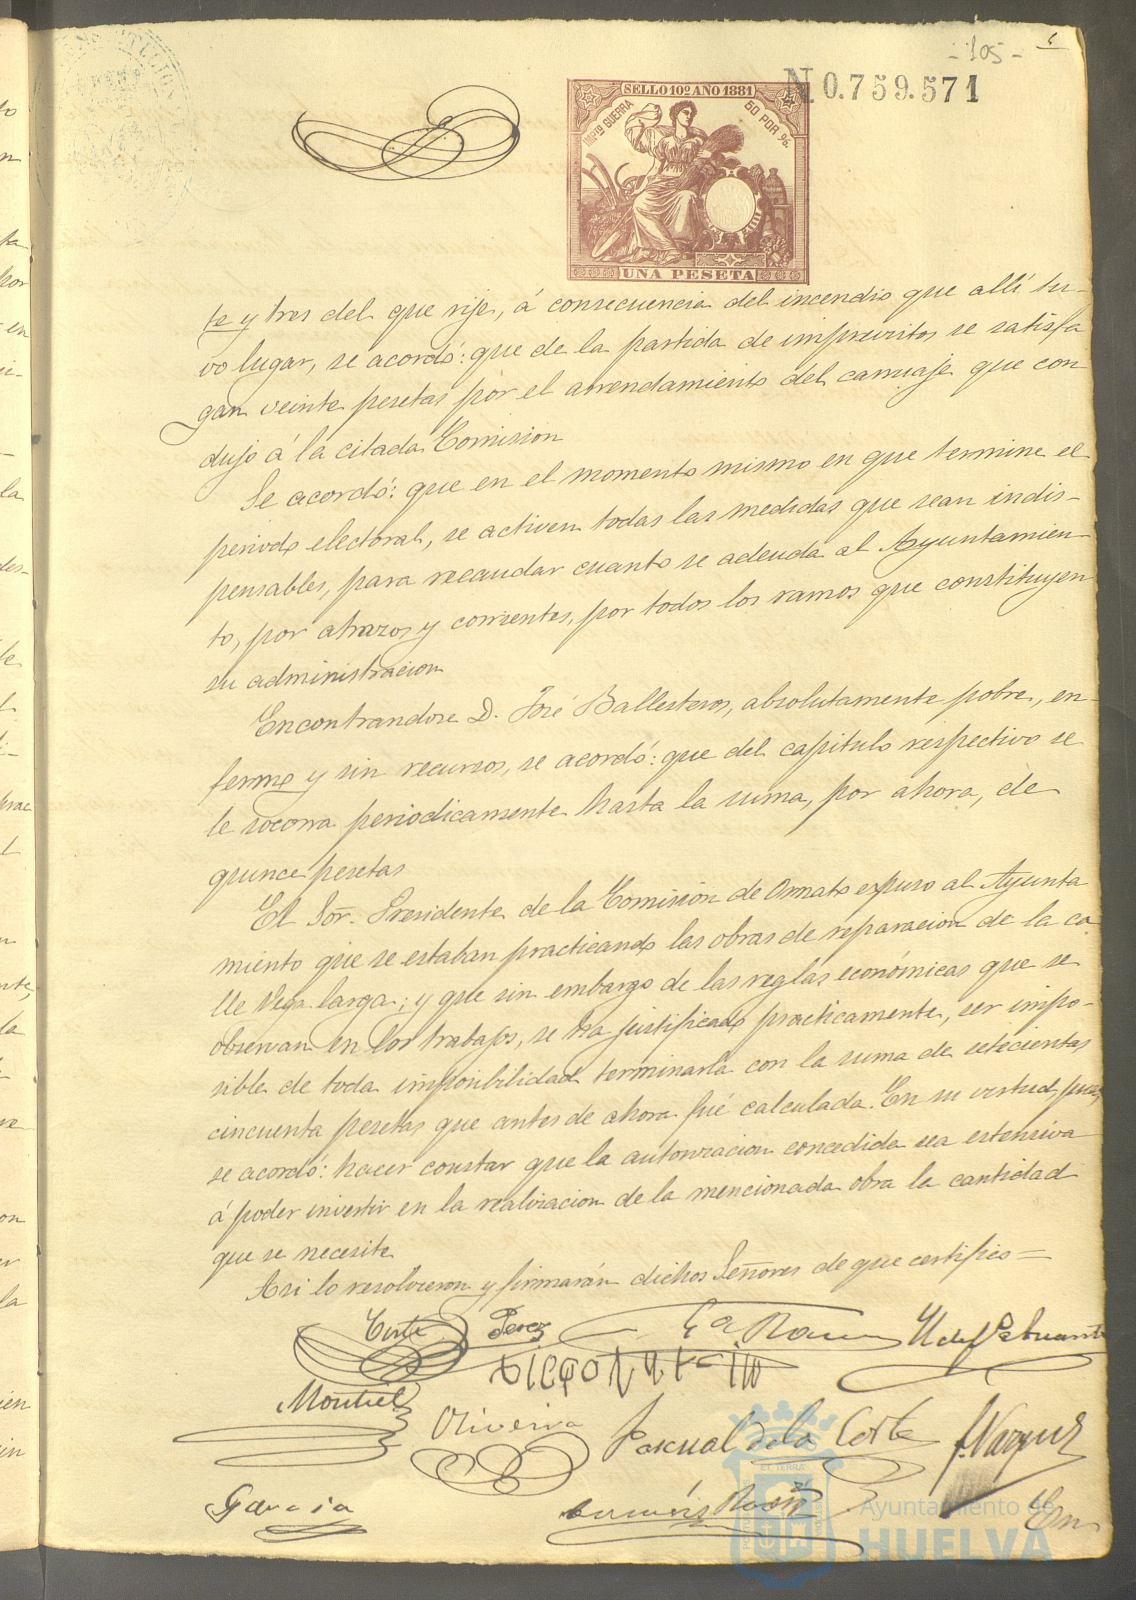 -105-
N 0.759.571
SELLO 10º AÑO 1881
IMPTO GUERRA
50 POR %.
UNA PESETA
te y tres del que rije, á consecuencia del incendio que allí tu-
vo lugar, se acordó: que de la partida de imprevistos se satisfa
gan veinte pesetas por el arrendamiento del carruaje que con
dujo á la citada Comision
Se acordó: que en el momento mismo en que termine el
periodo electoral, se activen todas las medidas que sean indis-
pensables, para recaudar cuanto se adeuda al Ayuntamien
to, por atrazos y corrientes, por todos los ramos que constituyen
su administracion
Encontrandose D. José Ballesteros, absolutamente pobre, en-
fermo y sin recursos, se acordó: que del capitulo respectivo se
le socorra periodicamente hasta la suma, por ahora, de
quince pesetas
El Sor. Presidente de la Comision de Ornato expuso al Ayunta
miento que se estaban practicando las obras de reparacion de la ca
lle Vega larga; y que sin embargo de las reglas económicas que se
observan en los trabajos, se ha justificado practicamente, ser impo-
sible de toda imposibilidad terminarla con la suma de setecientas
cincuenta pesetas que antes de ahora fué calculada. En su virtud, pues,
se acordó: hacer constar que la autorizacion concedida sea estensiva
á poder invertir en la realizacion de la mencionada obra la cantidad
que se necesite
Asi lo resolvieron y firmarán dichos Señores de que certifico=
Corte Perez Ga Ramos
Montiel Oliveira Pascual de la Corte F. Vazquez
Garcia
EL TERRA
Ayuntamiento de
HUELVA